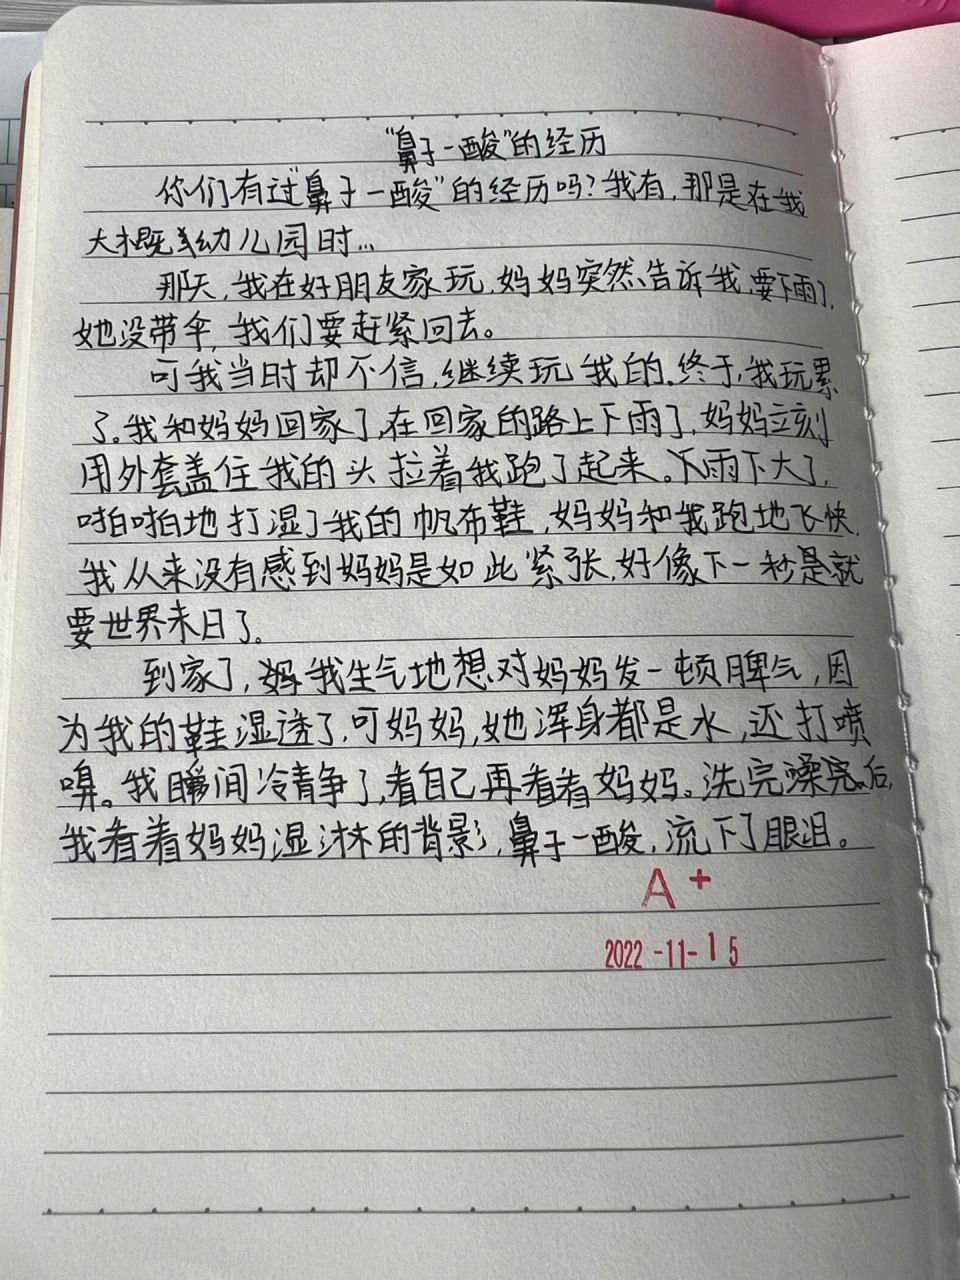 "鼻子一酸"的经历
你们有过"鼻子一酸"的经历吗?我有,那是在我
大概幼儿园时...
那天,我在好朋友家玩,妈妈突然告诉我,要下雨了,
她没带伞,我们要赶紧回去。
可我当时却不信,继续玩我的.终于,我玩累
了。我和妈妈回家了,在回家的路上下雨了,妈妈立刻
用外套盖住我的头拉着我跑了起来。下雨下大了,
啪啪地打湿了我的帆布鞋,妈妈和我跑地飞快,
我从来没有感到妈妈是如此紧张,好像下一秒是就
要世界末日了。
到家了,我生气地想对妈妈发一顿脾气,因
为我的鞋湿透了.可妈妈,她浑身都是水,还打喷
嗅。我瞬间冷静了,看自己再看看妈妈。洗完澡后,
我看着妈妈湿淋的背影,鼻子一酸,流下了眼泪。
A+
2022-11-15